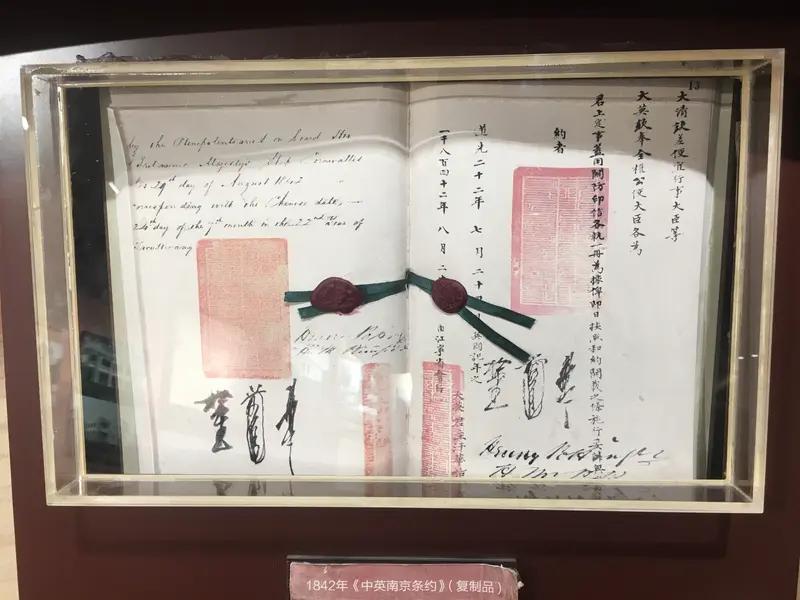 by the Plenipotentiaries on board Her
Britannic Majesty's Ship Cornwallis
29th day of August 1842
corresponding with the Chinese date,
24th day of the 7th month in the 22nd Year of
Taoukwang
13
大清欽差便宜行事大臣等
大英欽奉全權公使大臣各為
君上定事蓋用關防印信各執一冊為據俾即日按照和約開載之條施行妥辦
約者
道光二十二年 七月二十四日 英國記年之
一千八百四十二年 八月二十 由江寧省會行
大英君主汗華
1842年《中英南京条约》（复制品）